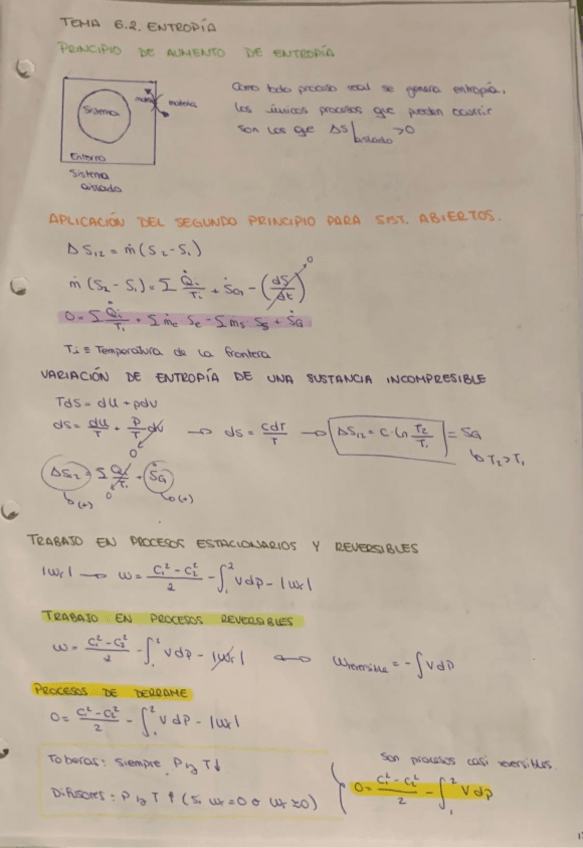 TEMA 6.2. ENTROPÍA
PRINCIPIO DE AUMENTO DE ENTROPÍA
Sistema
materia
Entorno
Sistema
aislado
Como todo proceso real se genera entropía,
los únicos procesos que pueden ocurrir
son los que ΔS|aislado >0
APLICACIÓN DEL SEGUNDO PRINCIPIO PARA SIST. ABIERTOS.
Δ S₁₂ = ṁ (S₂ - S₁)
ṁ (S₂ - S₁) = Σ Q̇i/Ti + ṠG - (dS/dt) 0
0 = Σ Q̇i/Ti + Σ ṁe Se - Σ ṁs Ss + ṠG
Ti ≡ Temperatura de la frontera
VARIACIÓN DE ENTROPÍA DE UNA SUSTANCIA INCOMPRESIBLE
Tds = du + pdv
ds = du/T + P/T dv → ds = cdT/T → ΔS₁₂ = C · Ln T₂/T₁ = SG
0
↳ T₂ > T₁
ΔS₁₂ = Σ Qi/Ti + ṠG
↳ (+) 0 ↳ (+)
TRABAJO EN PROCESOS ESTACIONARIOS Y REVERSIBLES
|wr| → w = (C₁² - C₂²)/2 - ∫₁² vdp - |wr|
TRABAJO EN PROCESOS REVERSIBLES
w = (C₁² - C₂²)/2 - ∫₁² vdp - |wr| ↔ wreversible = - ∫ vdp
PROCESOS DE DERRAME
0 = (C₁² - C₂²)/2 - ∫₁² vdp - |wr|
Toberas: Siempre P y T ↓
Difusores: P y T ↑ (Si wr = 0 o wr ≈ 0)
Son procesos casi reversibles.
0 = (C₁² - C₂²)/2 - ∫₁² vdp